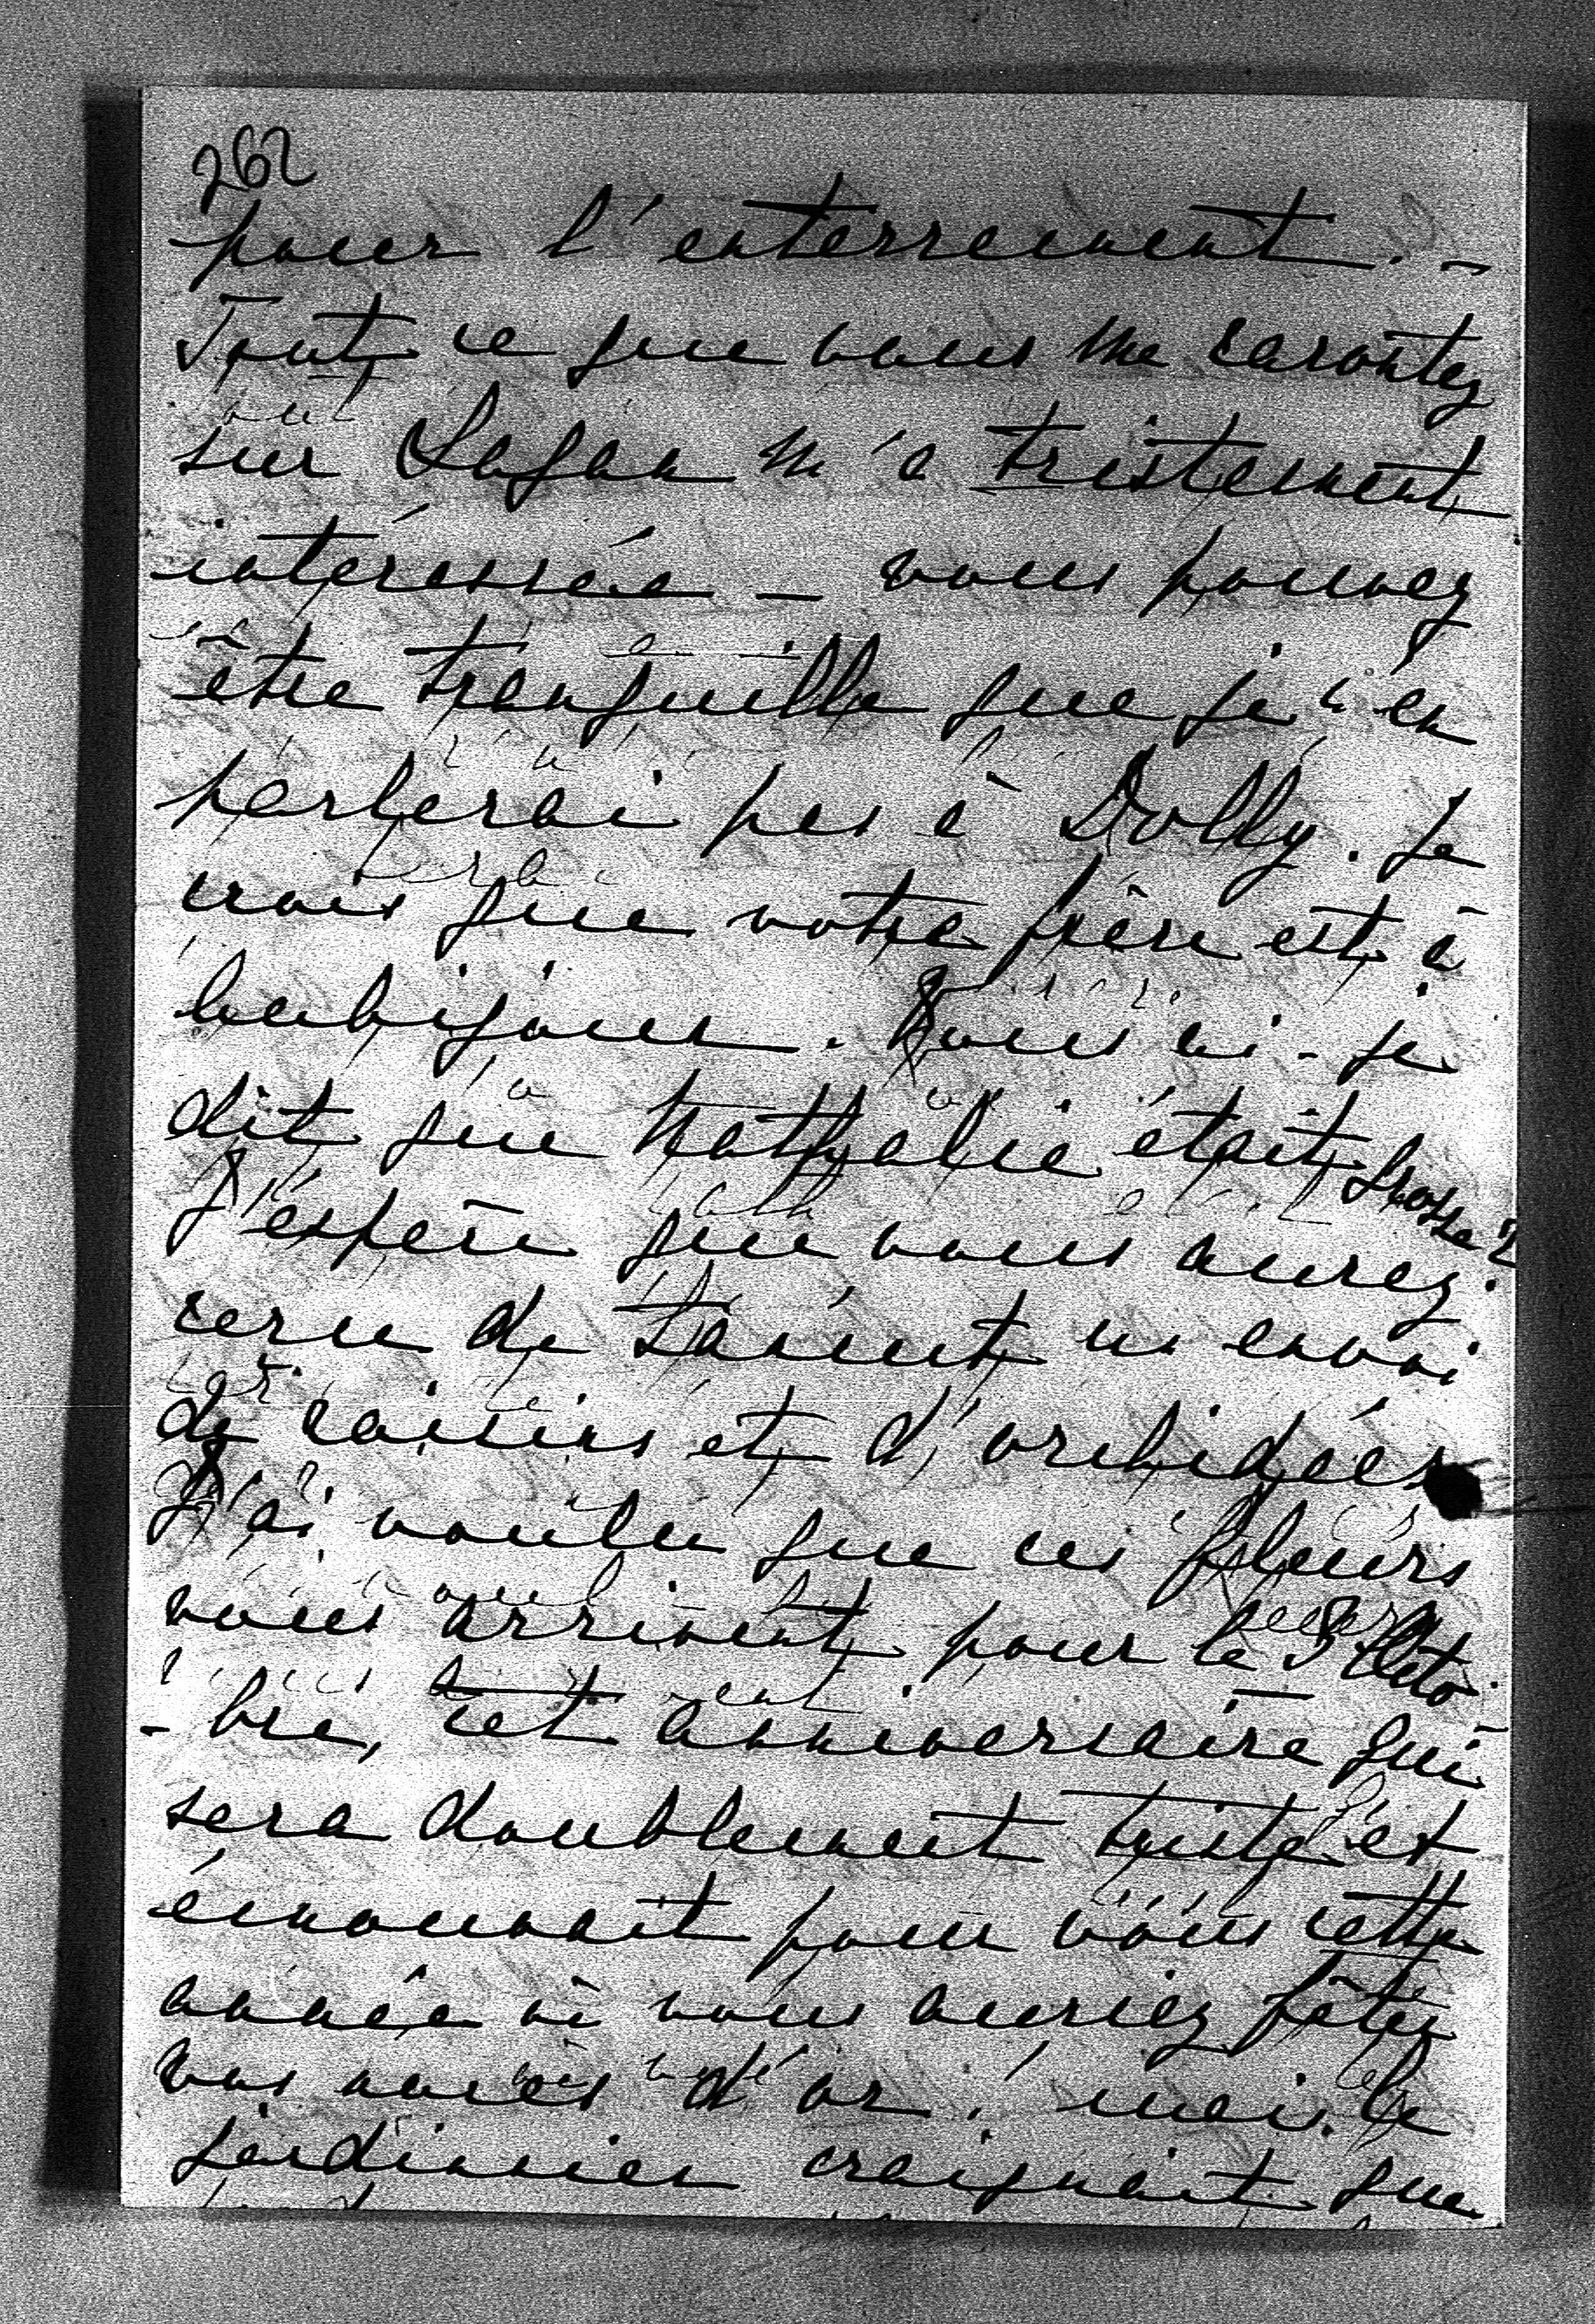 262
pour l'enterrement. -
Tout ce que vous me racontez
sur Sagan m'a tristement
intéressée - vous pouvez
être tranquille que je n'en
parlerai pas à Dolly. Je
crois que votre frère est à
Vous ai-je
dit que Nathalie était grosse?
J'espère que vous aurez
recu de un envoi
de raisins et d'orchidées
J'ai voulu que ces fleurs
vous arrivent pour le 3 Octo
- bre, cet anniversaire qui
sera doublement triste et
émouvant pour vous cette
année où vous auriez fêté
vos noces d'or! mais le
jardinier craignait que